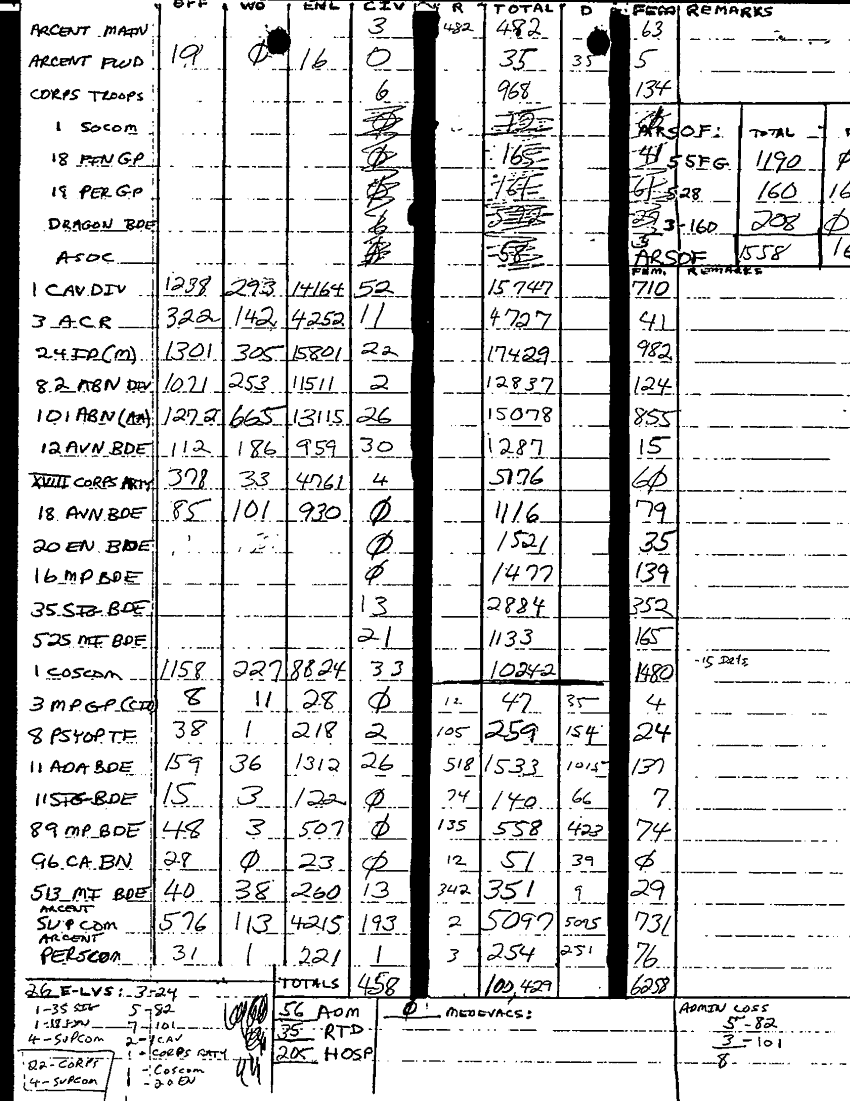 OFF WO ENL CIV R TOTAL D FEM REMARKS
ARCENT MAIN 3 482 482 63
ARCENT FWD 19 Ø 16 0 35 35 5
CORPS TROOPS 6 968 134
1 SOCOM Ø ARSOF: TOTAL
18 FIN GP Ø 165 41 5 SFG 1190 Ø
19 PER GP Ø 528 160 16
DRAGON BDE 6 3-160 208 Ø
ASOC 58 3 ARSOF 1558 16
FEM. REMARKS
1 CAV DIV 1238 293 14164 52 15747 710
3 ACR 322 142 4252 11 4727 41
24 ID(M) 1301 305 15801 22 17429 982
82 ABN DIV 1071 253 11511 2 12837 124
101 ABN (AA) 1272 665 13115 26 15078 855
12 AVN BDE 112 186 959 30 1287 15
XVIII CORPS ARTY 378 33 4761 4 5176 6Ø
18 AVN BDE 85 101 930 Ø 1116 79
20 EN BDE Ø 1521 35
16 MP BDE Ø 1477 139
35 SIG BDE 13 2884 352
525 MI BDE 21 1133 165
1 COSCOM 1158 227 8824 33 10242 1480 -15 Dets
3 MP GP (CID) 8 11 28 Ø 12 47 35 4
8 PSYOP TF 38 1 218 2 105 259 154 24
11 ADA BDE 159 36 1312 26 518 1533 1015 137
11 SIG BDE 15 3 122 Ø 74 140 66 7
89 MP BDE 48 3 507 Ø 135 558 423 74
96 CA BN 28 Ø 23 Ø 12 51 39 Ø
513 MI BDE 40 38 260 13 342 351 9 29
ARCENT
SUPCOM 576 113 4215 193 2 5097 5095 731
ARCENT
PERSCOM 31 1 221 1 3 254 251 76
TOTALS 458 100,429 6258
26 E-LVS: 3-24
1-35 SIG 5-82
7-101
4-SUPCOM 2-1CAV
1-CORPS ARTY
22-CORPS 1-COSCOM
4-SUPCOM 1-20 EN
56 ADM Ø MEDEVACS:
35 RTD
205 HOSP
ADMIN LOSS
5-82
3-101
8